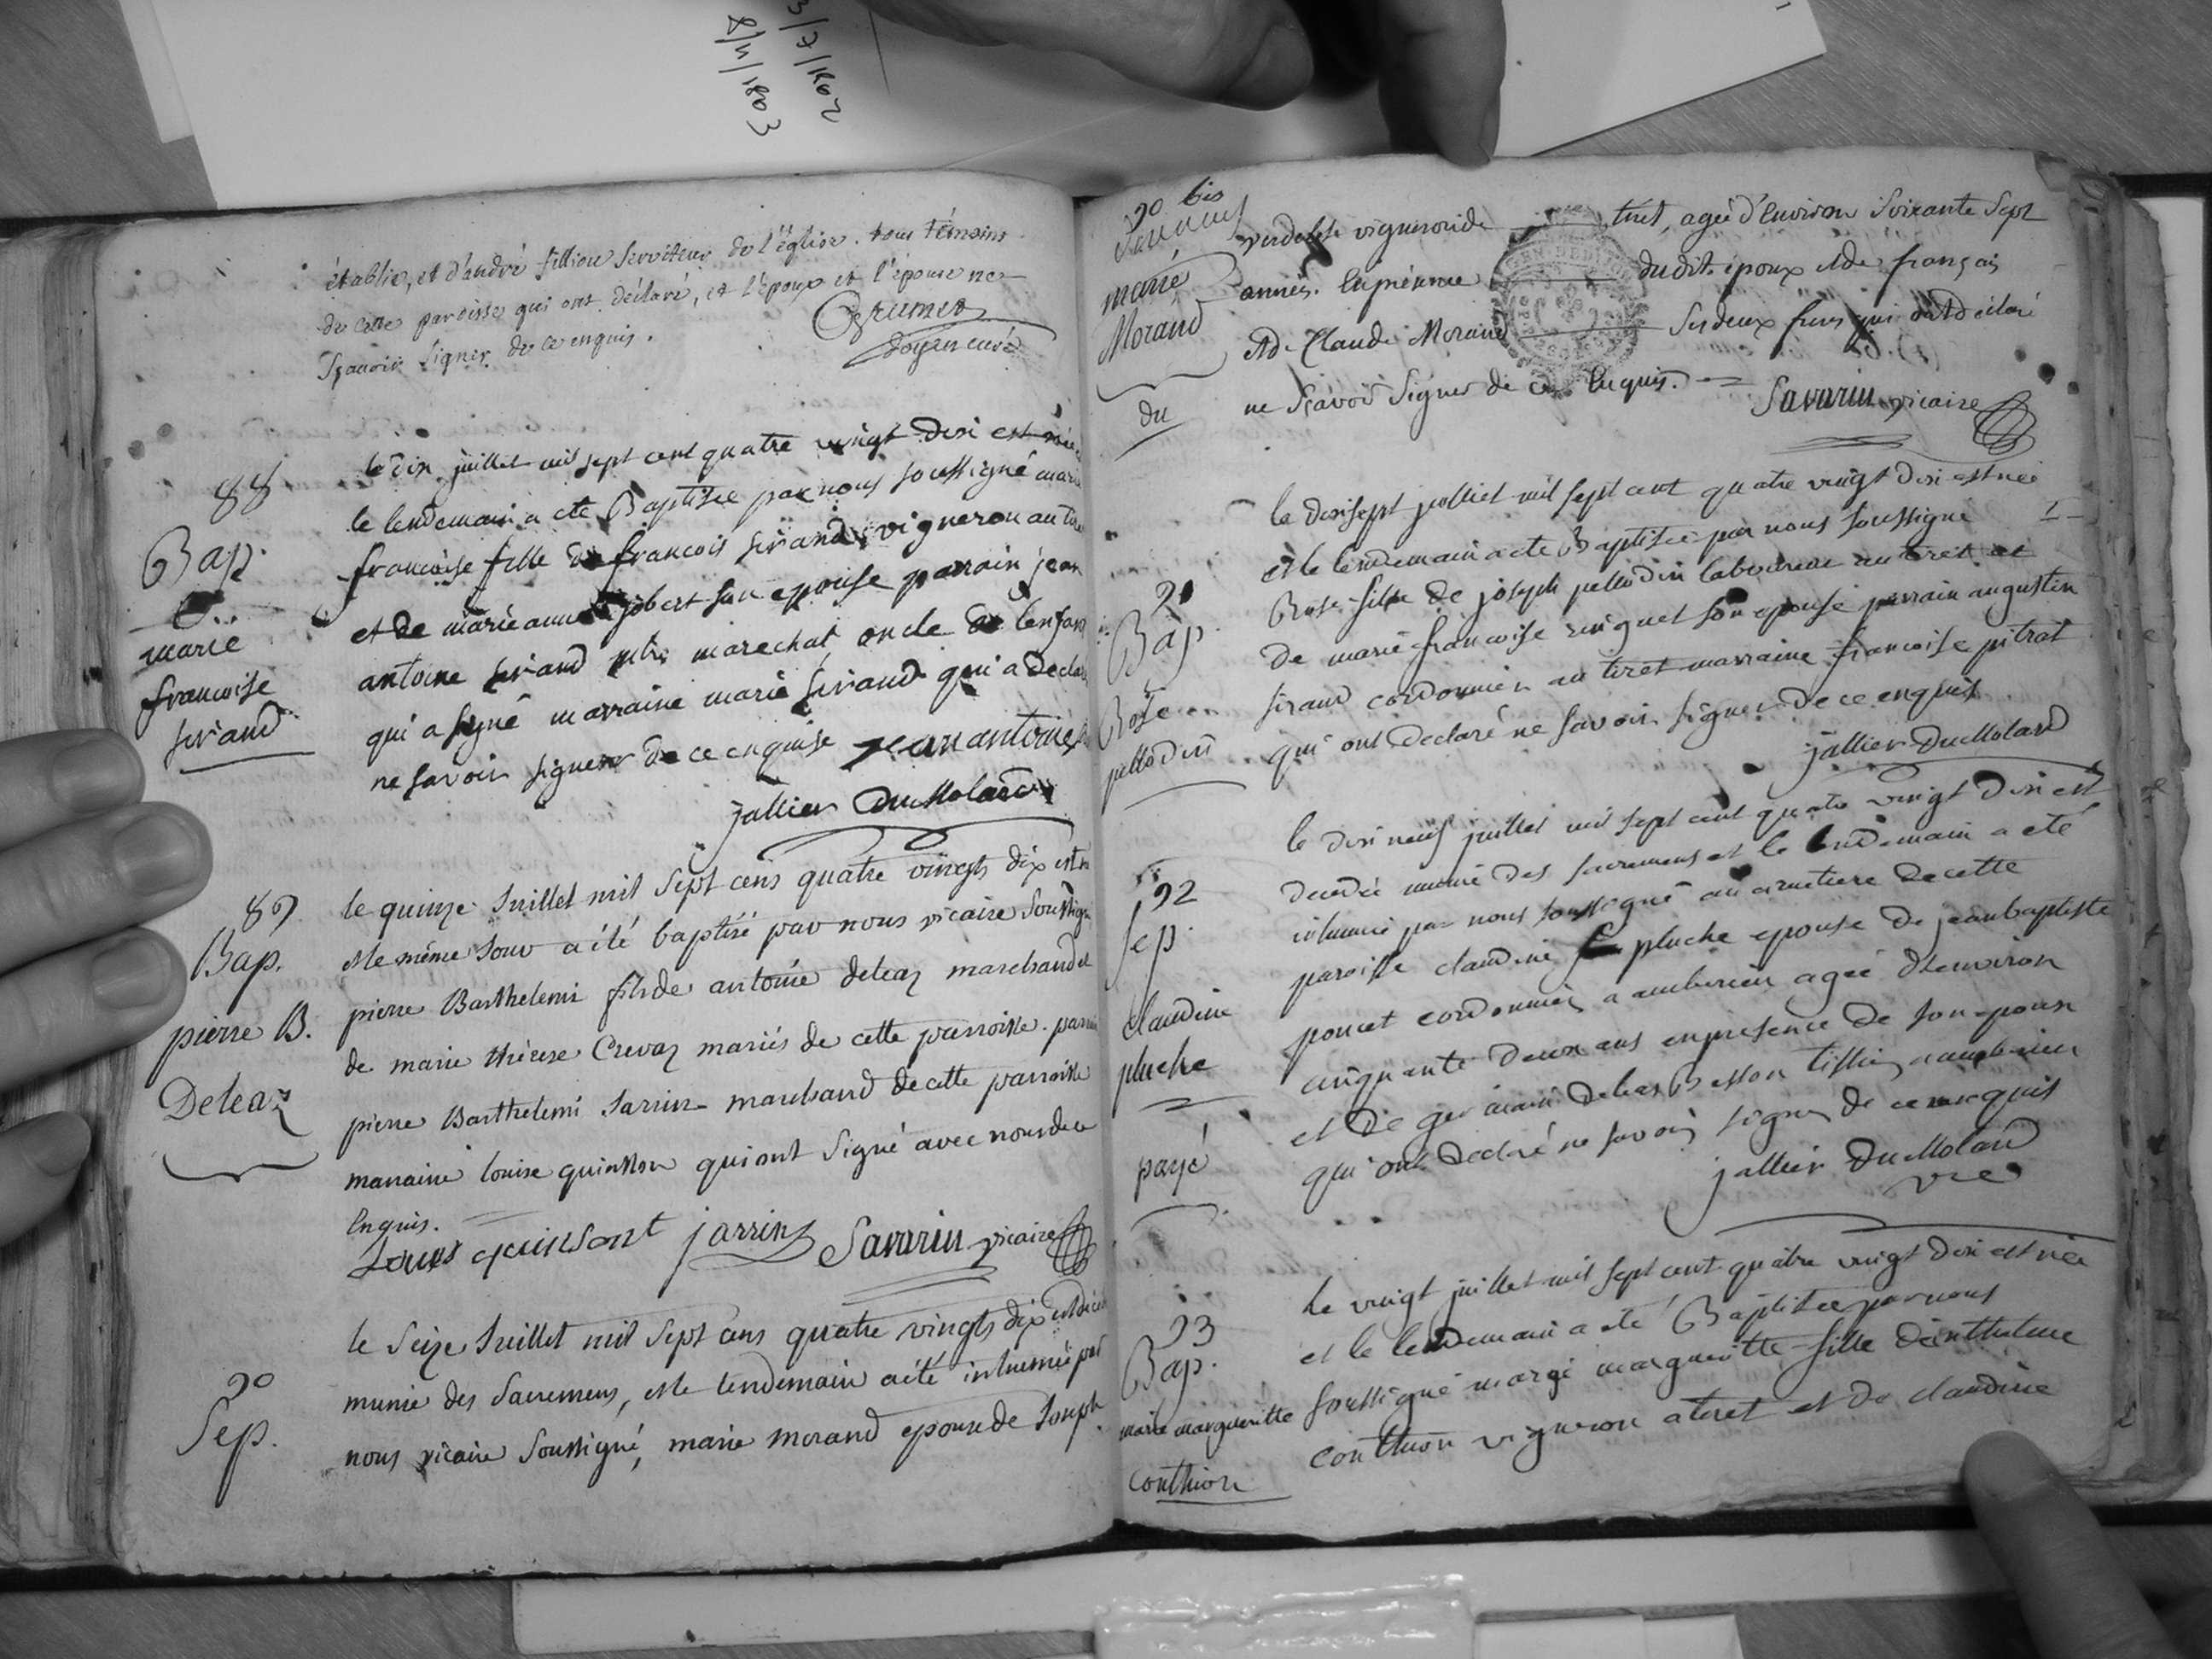 3/7/1802
8/11/1803
établie, et d'andré fillion serviteur de l'église. tous témoins
de cette paroisse qui ont déclaré, et l'époux et l'épouse ne
sçavoir signer de ce enquis.
doyen curé
88
Bap.
marie
francoise
sirand
le dix juillet mil sept cent quatre vingt dix est née
le lendemain a eté Baptisée par nous soussigné marie
francoise fille de francois sirand vigneron au tiret
et de marie anne jobert son epouse parrain jean
antoine sirand marechal oncle de lenfant
qui a signé marraine marie sirand qui a declaré
ne savoir signer de ce enquise jean antoine
jallier Dumolard
89
Bap.
pierre B.
Deleaz
le quinze Juillet mil sept cens quatre vingts dix est né
et le même Jour a été baptisé par nous vicaire soussigné
pierre Barthelemi fils de antoine deleaz marchand et
de marie thérese Crevaz mariés de cette parroisse. parrain
pierre Barthelemi Jarrin marchand de cette parroisse
marraine louise quinsson qui ont signé avec nous de ce
Enquis.
Louis quinsont jarrin Savarin vicaire
90
Sep.
le seize Juillet mil sept cens quatre vingts dix est décédé
munie des sacremens, et le lendemain a été inhumée par
nous vicaire soussigné, marie morand epouse de Joseph
90 bis
marie
Morand
du
vigneron de tiret, agée d'Environ soixante sept
années. En présence dudit epoux et de françois
et de Claude Morand ses deux freres qui ont déclaré
ne sçavoir signer de ce Enquis. Savarin vicaire
91
Bap.
Rose
pellodin
le dixsept juillet mil sept cent quatre vingt dix est née
et le lendemain a eté Baptisée par nous soussigné
Rose fille de joseph pellodin laboureur au tiret et
de marie francoise ruignet son epouse parrain augustin
sirand cordonnier au tiret marraine francoise pitrat
qui ont declaré ne savoir signer de ce enquis
jallier Dumolard
92
sep.
claudine
pluche
payé
le dix neuf juillet mil sept cent quatre vingt dix est
decedée munie des sacremens et le lendemain a eté
inhumée par nous soussigné au cimetiere de cette
paroisse claudine pluche epouse de jean baptiste
poncet cordonnier a amberieu agée d'environ
cinquante deux ans en presence de son epoux
et de germain debas Besson tissier a amberieu
qui ont declaré ne savoir signer de ce enquis
jallier Dumolard
vic
93
Bap.
marie margueritte
conthion
le vingt juillet mil sept cent quatre vingt dix est née
et le lendemain a eté Baptisée par nous
soussigné marie marguerite fille d'anthelme
conthion vigneron a tiret et de claudine